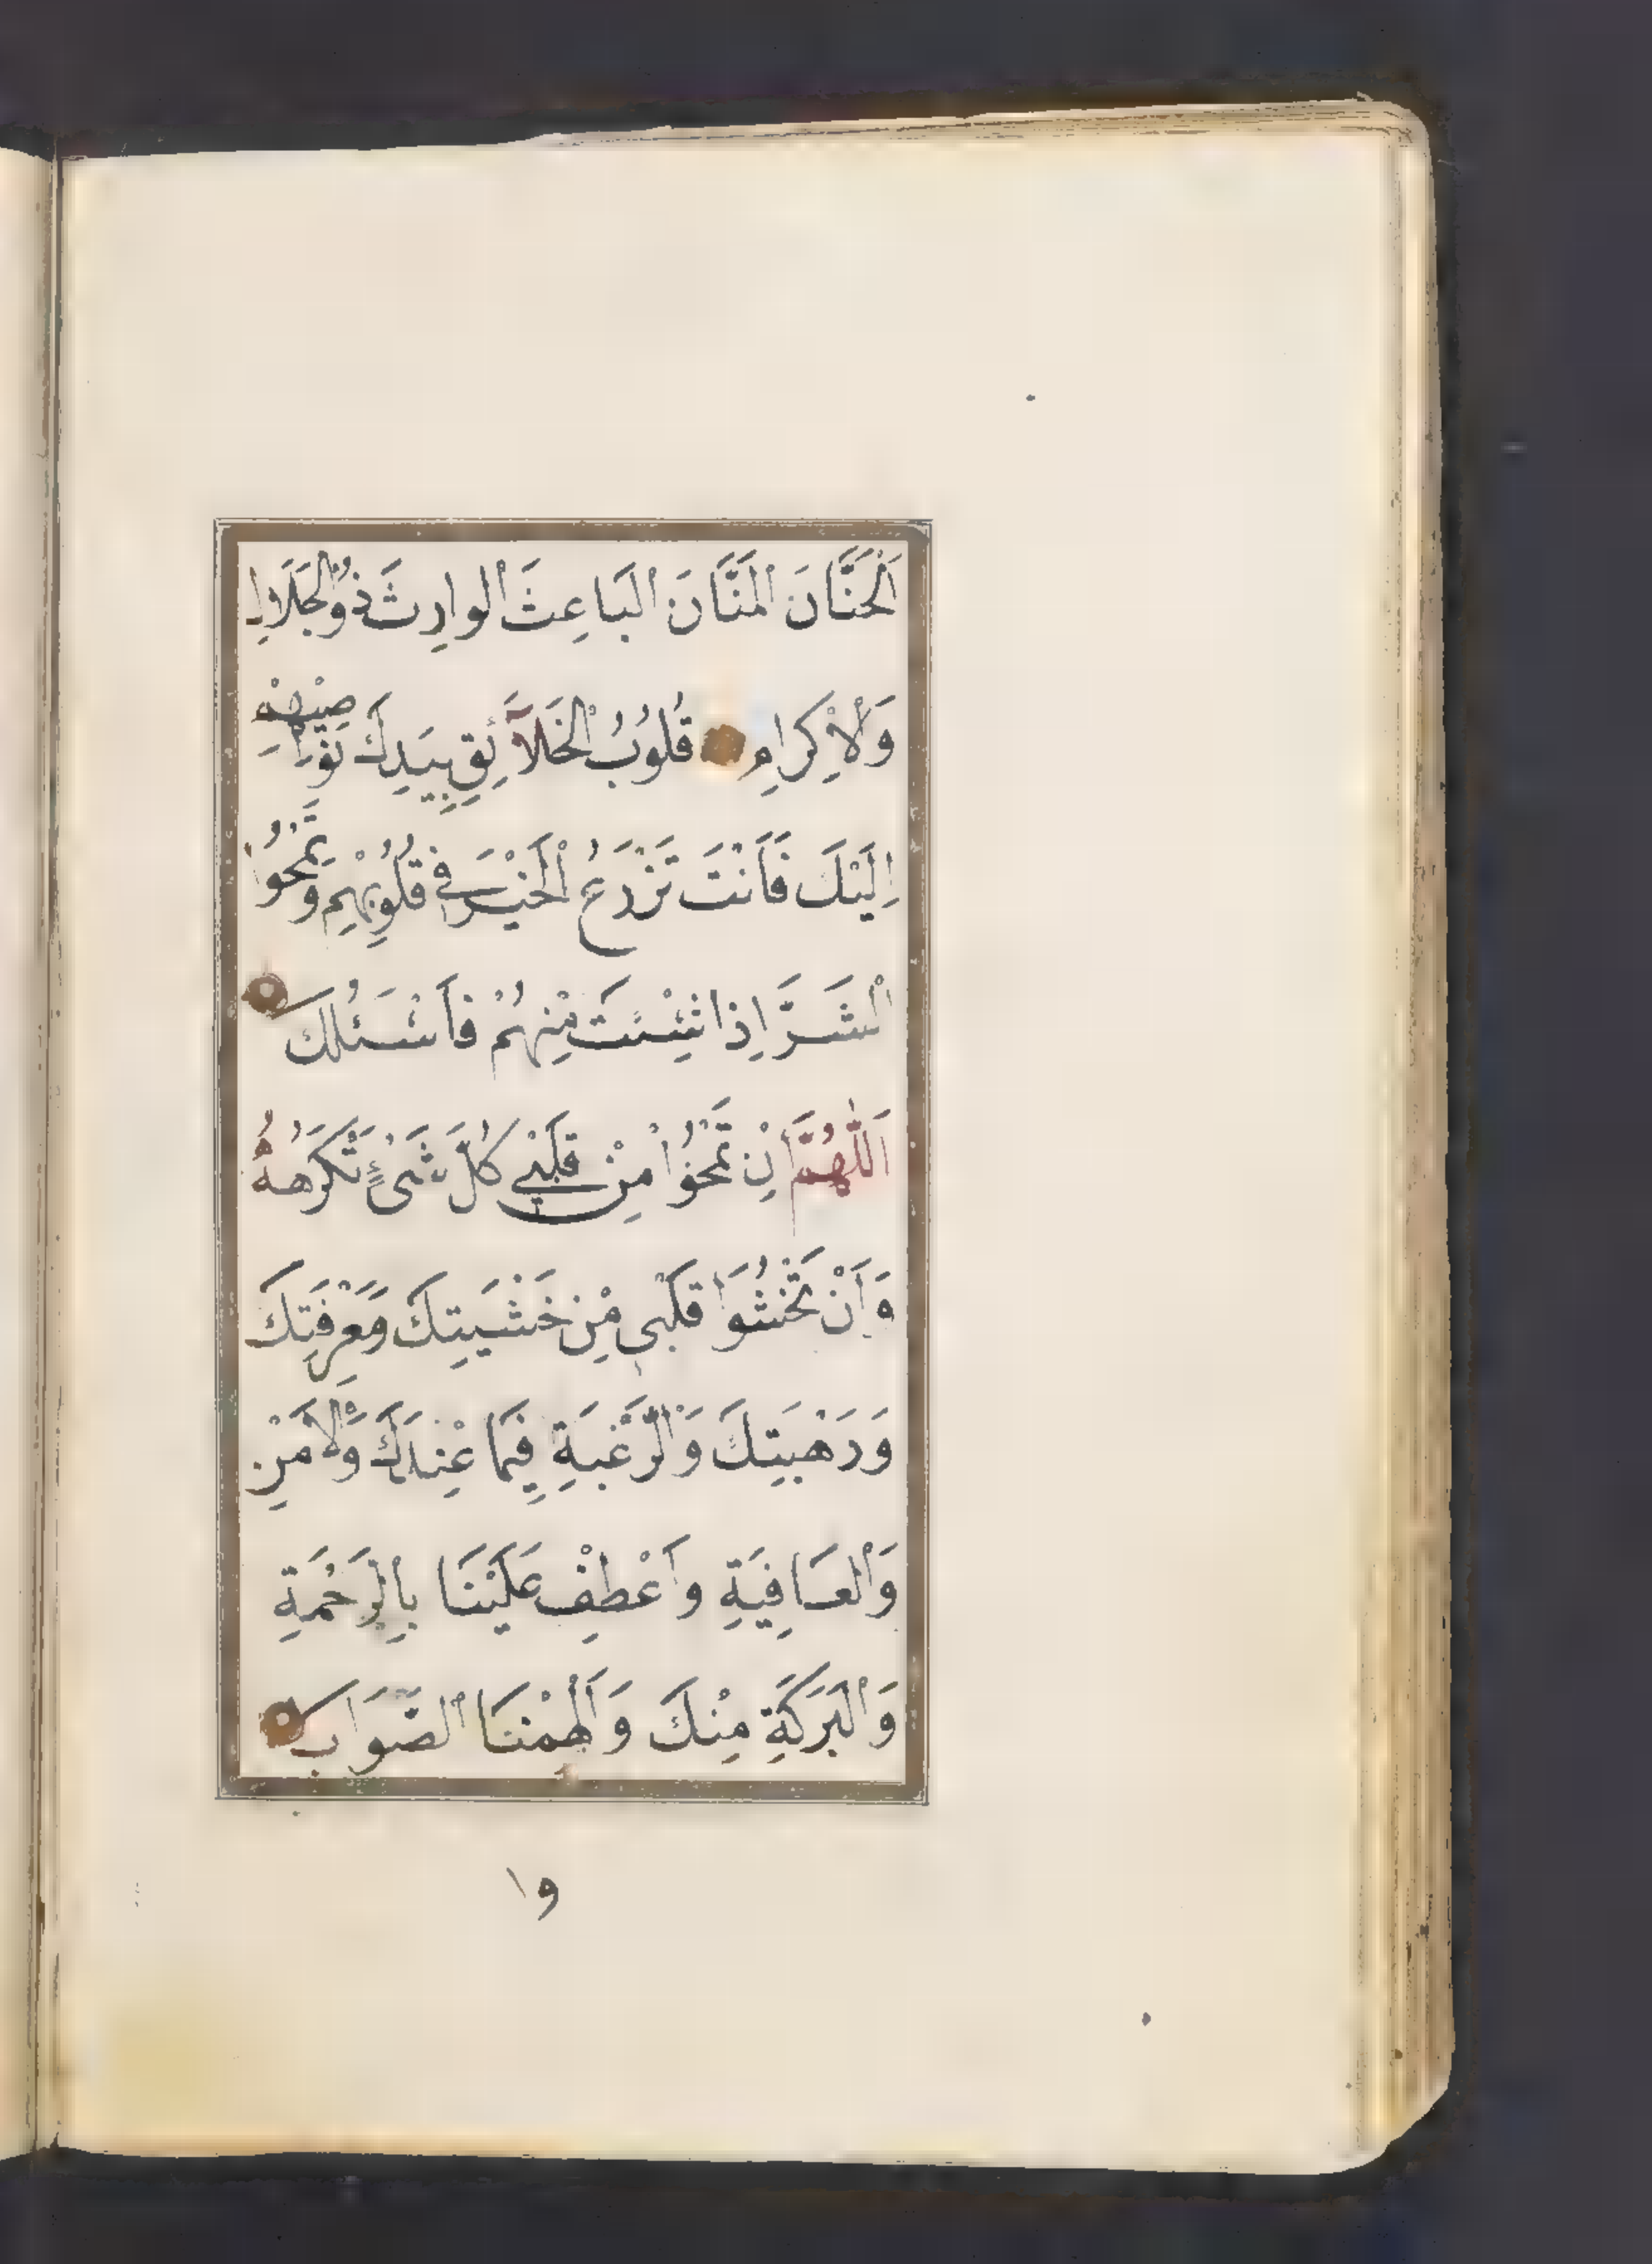 اَلْحَنَّانَ الْمَنَّانَ الْبَاعِثَ الْوارِثَ ذُوالْجَلَالِ
وَالْاِكْرَامِ قُلُوبُ الْخَلَآئِقِ بِيَدِكَ نَوَاصِيْهِمْ
اِلَيْكَ فَاَنْتَ تَزْرَعُ الْخَيْرَ فِي قُلُوبِهِمْ وَتَمْحُوا
الشَّرَّ اِذَا شِئْتَ مِنْهُمْ فَاَسْئَلُكَ
اَللّٰهُمَّ اَنْ تَمْحُوَا مِنْ قَلْبِي كُلَّ شَىْءٍ تَكْرَهُهُ
وَاَنْ تَحْشُوَا قَلْبِى مِنْ خَشْيَتِكَ وَمَعْرِفَتِكَ
وَرَهْبَتِكَ وَالرَّغْبَةِ فِيمَا عِنْدَكَ وَالْاَمْنِ
وَالْعَافِيَةِ وَاَعْطِفْ عَلَيْنَا بِالرَّحْمَةِ
وَالْبَرَكَةِ مِنْكَ وَاَلْهِمْنَا الصَّوَابَ
وا